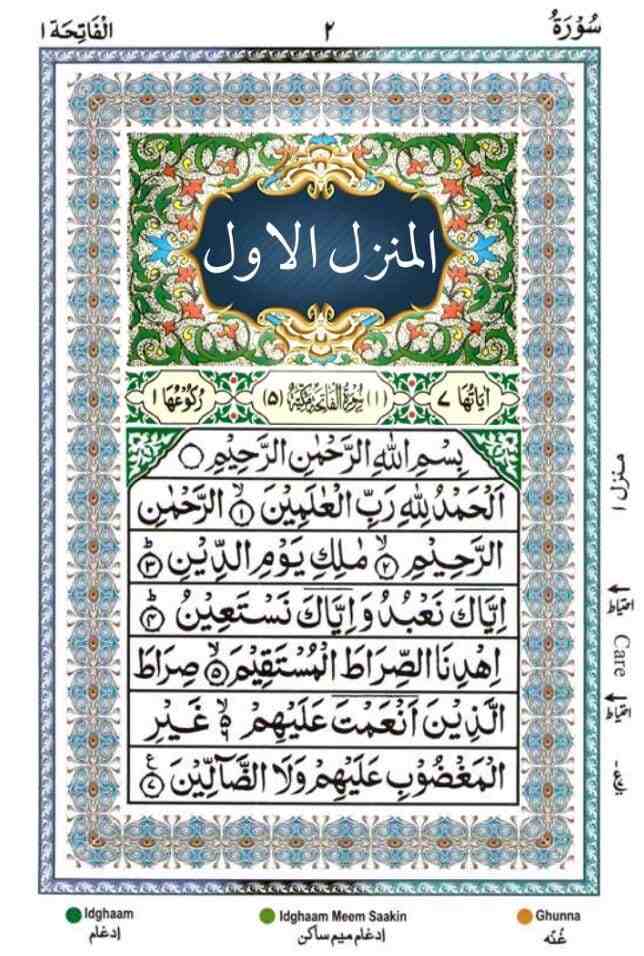 سُوْرَةُ ٢ الْفَاتِحَة ١
المنزل الاول
اٰيَاتُهَا ٧ (١) سُوْرَةُ الْفَاتِحَةِ مَكِّيَّةٌ (٥) رُكُوْعُهَا ١
بِسْمِ اللّٰهِ الرَّحْمٰنِ الرَّحِيْمِ
اَلْحَمْدُ لِلّٰهِ رَبِّ الْعٰلَمِيْنَ ۙ﴿١﴾ الرَّحْمٰنِ
الرَّحِيْمِ ۙ﴿٢﴾ مٰلِكِ يَوْمِ الدِّيْنِ ؕ﴿٣﴾
اِيَّاكَ نَعْبُدُ وَ اِيَّاكَ نَسْتَعِيْنُ ؕ﴿٤﴾
اِهْدِنَا الصِّرَاطَ الْمُسْتَقِيْمَ ۙ﴿٥﴾ صِرَاطَ
الَّذِيْنَ اَنْعَمْتَ عَلَيْهِمْ ۙ۬ غَيْرِ
الْمَغْضُوْبِ عَلَيْهِمْ وَلَا الضَّآلِّيْنَ ﴿٧﴾ ع
منزل ١
احتیاط
Care
احتیاط
Idghaam
ادغام
Idghaam Meem Saakin
ادغام میم ساکن
Ghunna
غُنّه